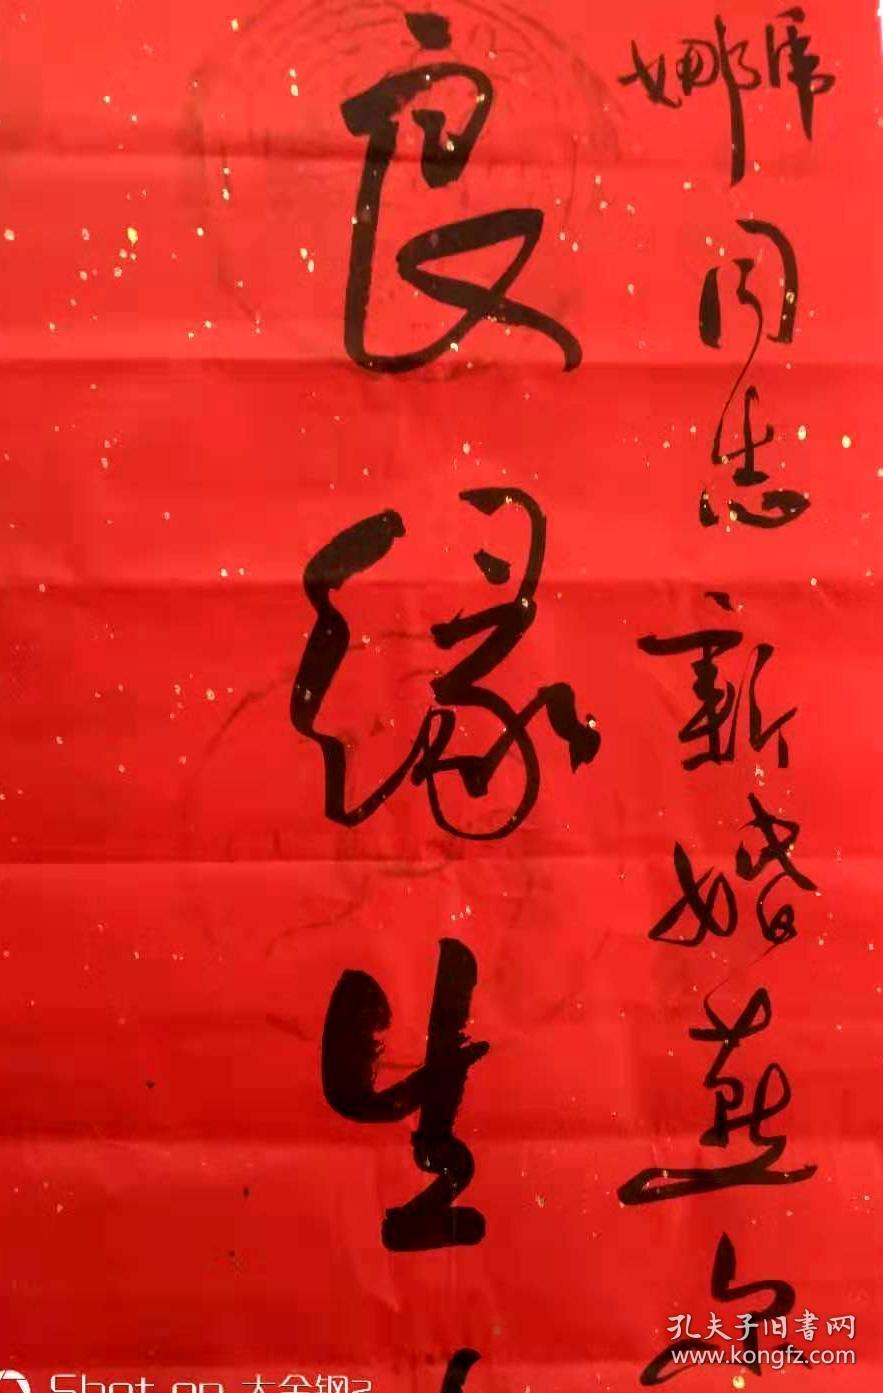 娜
同志新婚燕尔
良缘生
孔夫子旧书网
www.kongfz.com
Shot on 大金钢2